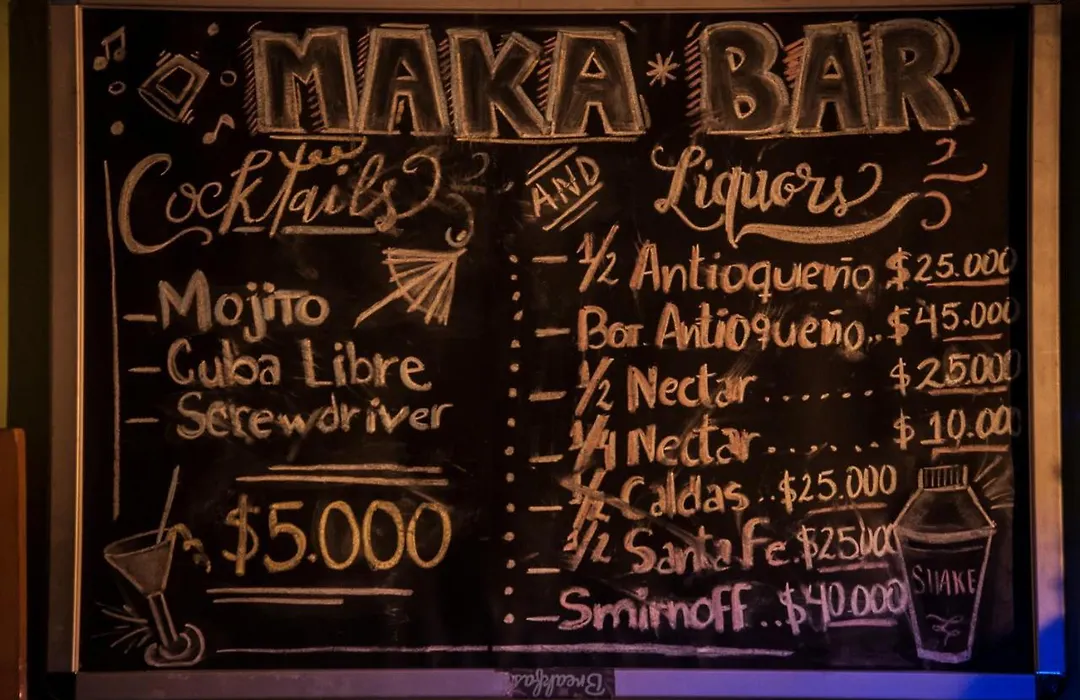 MAKA * BAR
Cocktails
AND
Liquors
- Mojito
- Cuba Libre
- Screwdriver
$5.000
- 1/2 Antioqueño $25.000
- Bot. Antioqueño.. $45.000
- 1/2 Nectar ...... $25.000
- 1/4 Nectar ...... $10.000
- 1/2 Caldas ..$25.000
- 1/2 Santa Fe.$25.000
- Smirnoff ..$40.000
SHAKE
Breakfas